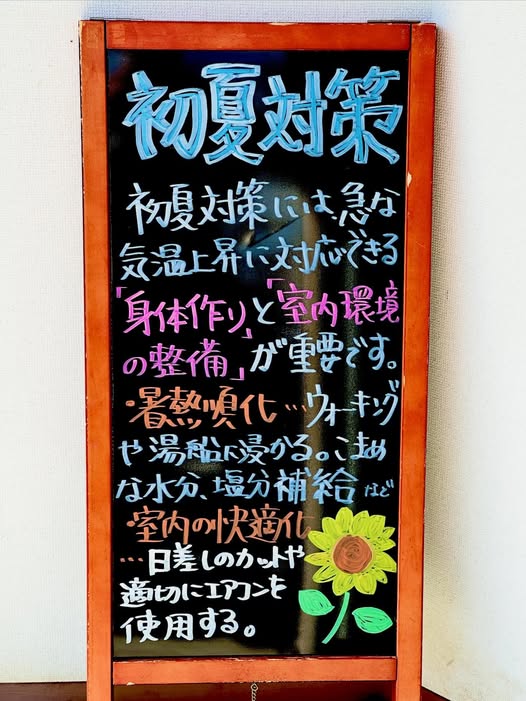 初夏対策
初夏対策には、急な
気温上昇に対応できる
「身体作り」と「室内環境
の整備」が重要です。
・暑熱順化…ウォーキング
や湯船に浸かる。こまめ
な水分、塩分補給など
・室内の快適化
…日差しのカットや
適切にエアコンを
使用する。